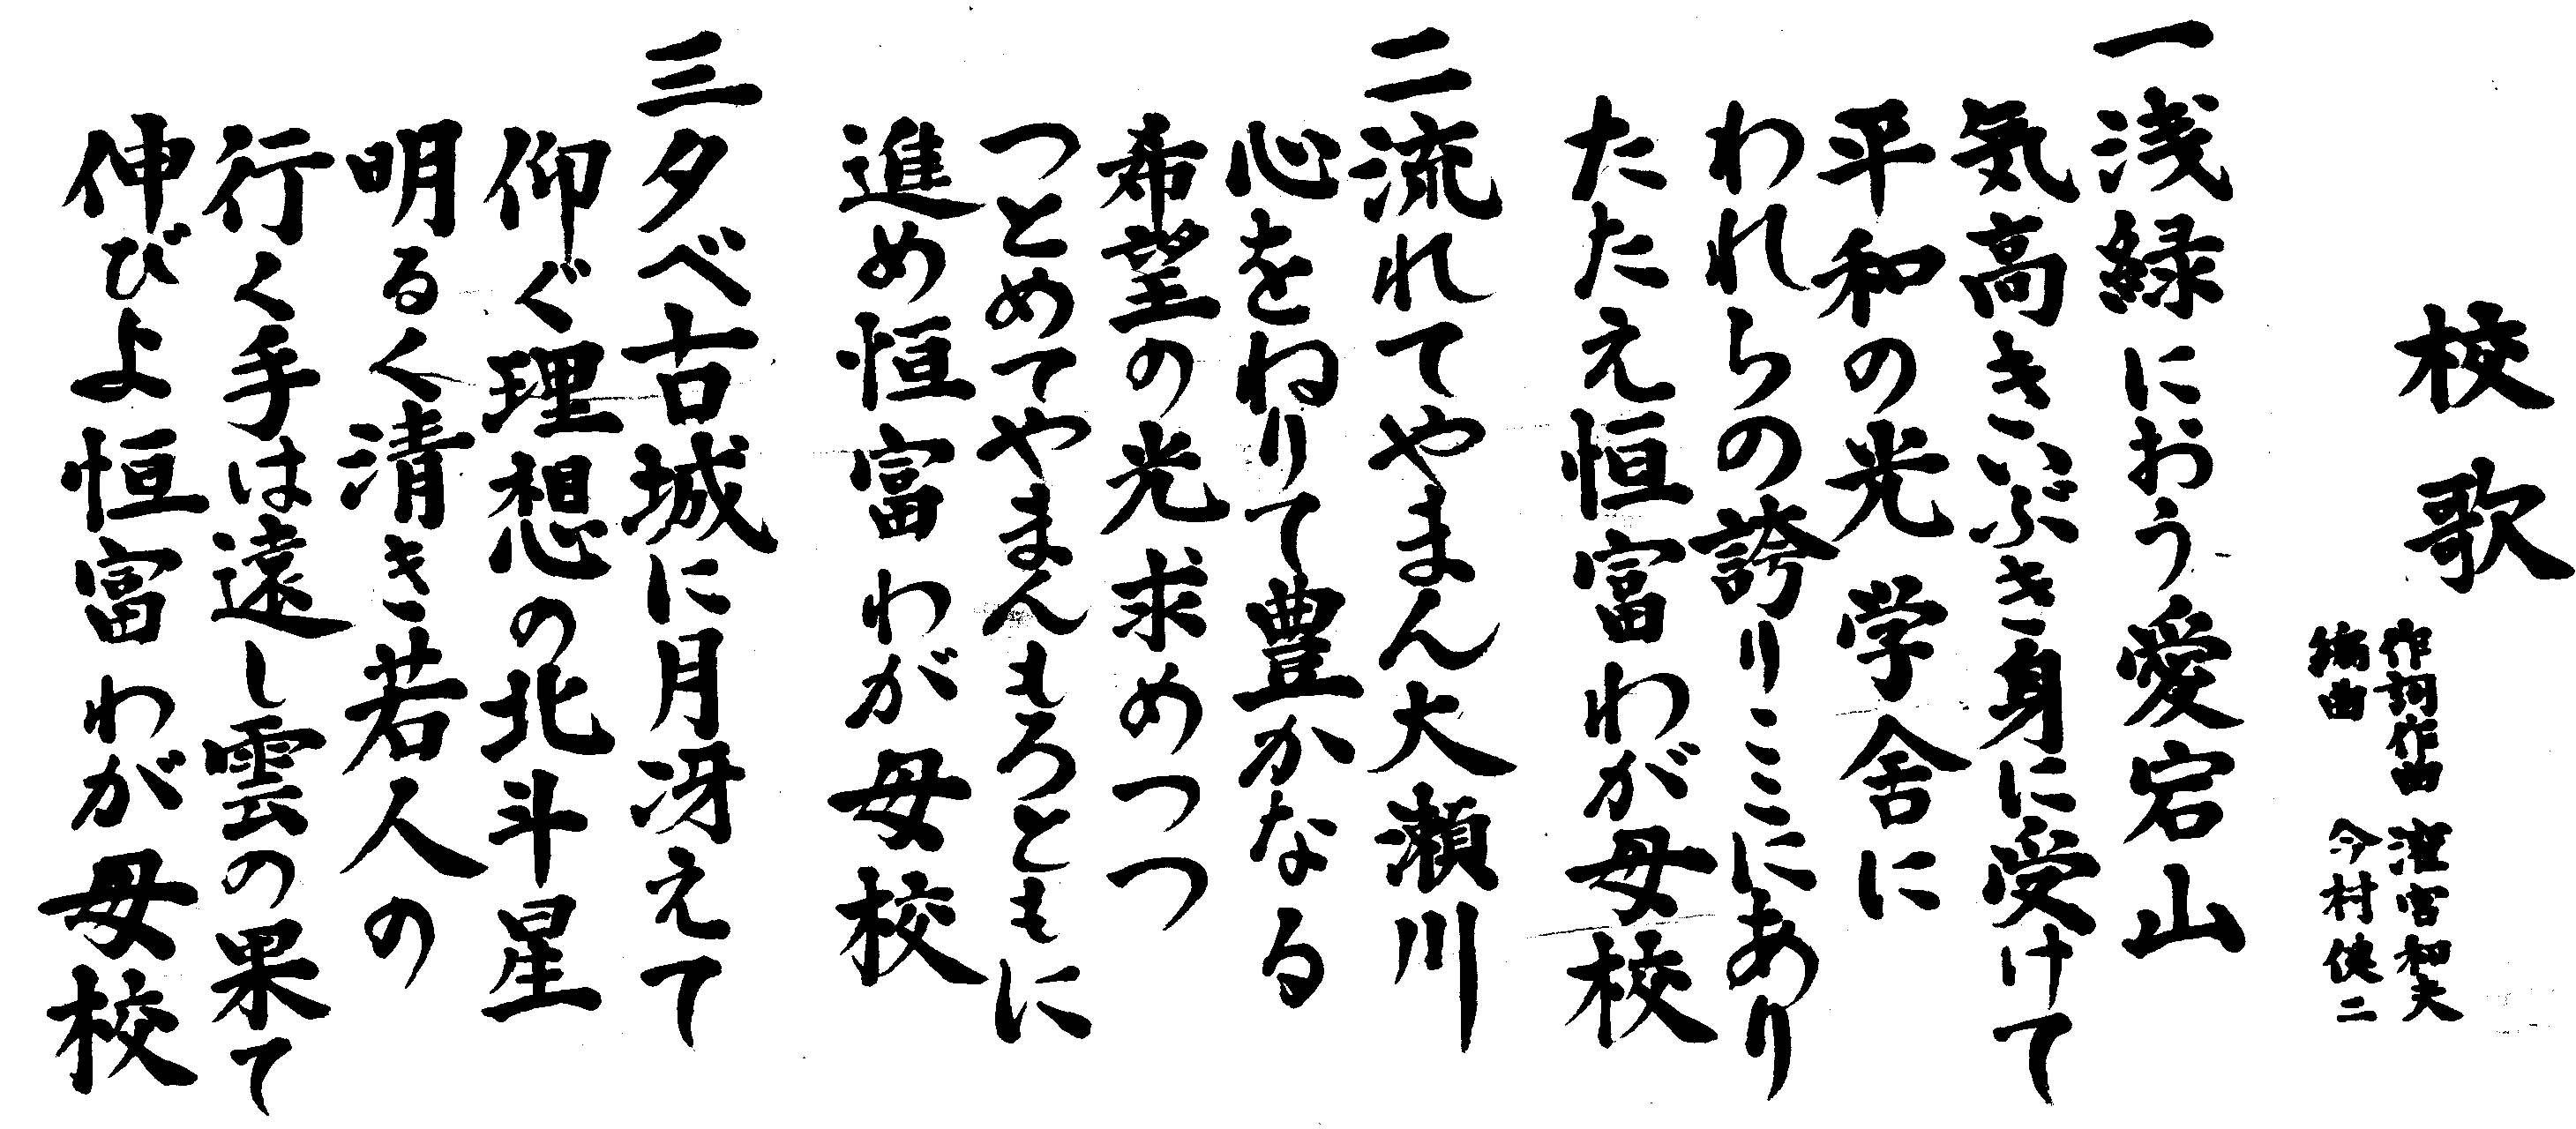 校歌
作詞作曲 窪宮和夫
編曲 今村健二
一浅緑におう愛宕山
気高きいぶき身に受けて
平和の光学舎に
われらの誇りここにあり
たたえ恒富わが母校
二流れてやまん大瀬川
心をねりて豊かなる
希望の光求めつつ
つとめてやまんもろともに
進め恒富わが母校
三夕べ古城に月冴えて
仰ぐ理想の北斗星
明るく清き若人の
行く手は遠し雲の果て
伸びよ恒富わが母校